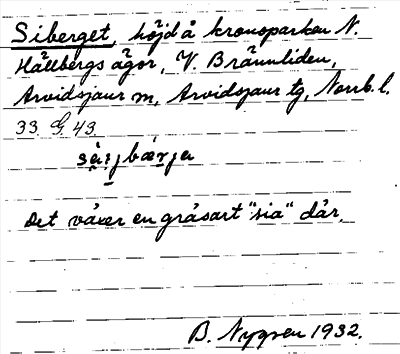 Siberget, höjd å kronoparken N.
Hällbergs ägor, V. Brännliden,
Arvidsjaur sn, Arvidsjaur tg, Norrb. l.
33 G 43
Det växer en gräsart "sia" där.
B. Nygren 1932.